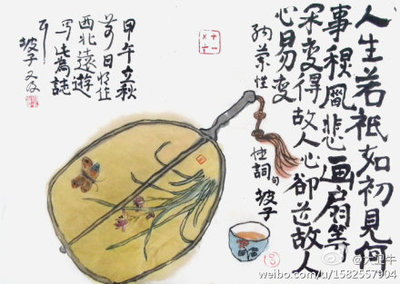 人生若祇如初見何
事穐風悲画扇等
闲变得故人心卻道故人
心易变
納蘭性德詞句 坡子
甲午立秋
前日
西北遠遊
写此為誌
坡子又及
weibo.com/u/1582557904